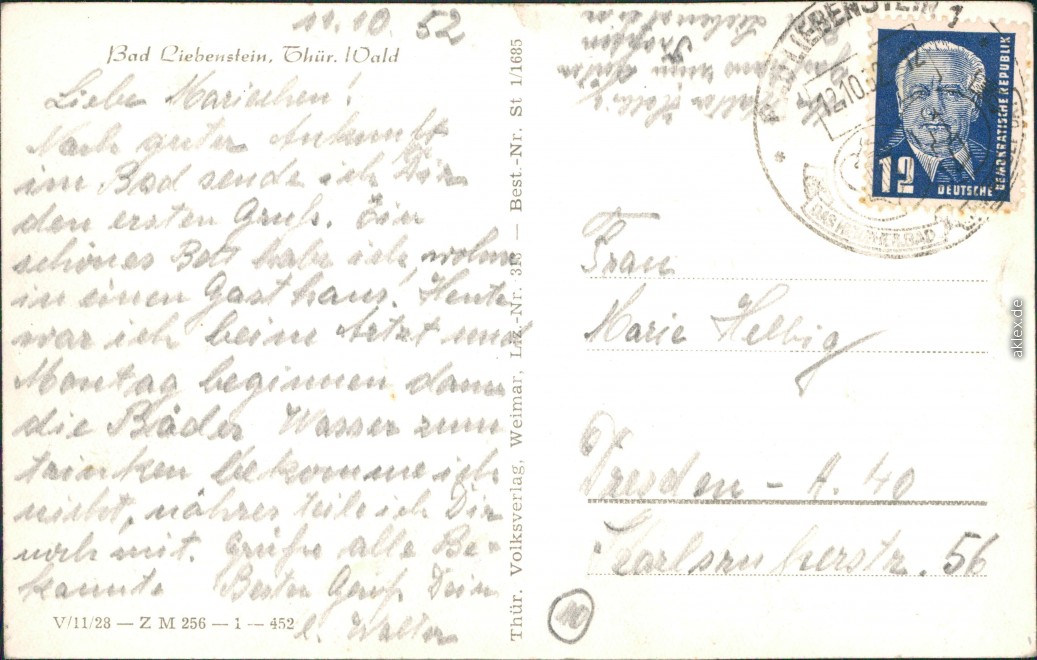 11.10.52
Bad Liebenstein, Thür. Wald
Liebe Mariechen!
Nach guter Ankunft
im Bad sende ich Dir
den ersten Gruß. Ein
schönes Bett habe ich, wohne
in einen Gasthaus. Heute
war ich beim Arzt und
Montag beginnen dann
die Bäder Wasser zum
trinken bekomme ich
nicht, nähres teile ich Dir
noch mit. Grüße alle Be-
kannte Besten Gruß Dein
Walter
V/11/28 — Z M 256 — 1 — 452
Thür. Volksverlag, Weimar, Liz.-Nr. 313 — Best.-Nr. St 1/1685
Liebenstein
BAD LIEBENSTEIN 1
12.10.52
12
DEUTSCHE
DEMOKRATISCHE REPUBLIK
Frau
Marie Helbig
Dresden - A. 40
Karlsruherstr. 56
10
aklex.de